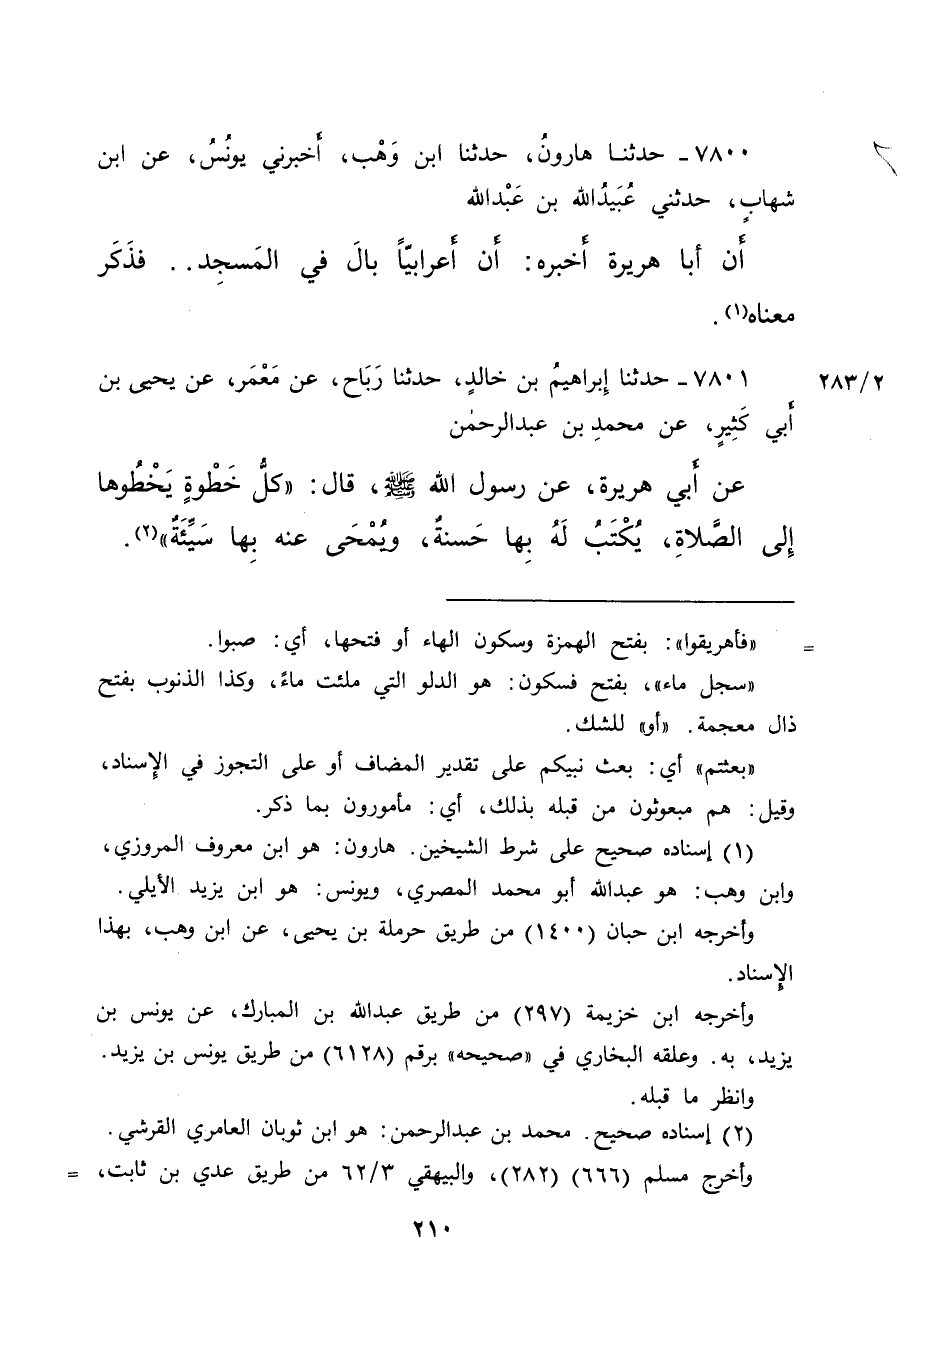 ٧٨٠٠ـ حدثنـا هارونُ، حدثنا ابن وَهْب، أَخبرني يونُسُ، عن ابن
شهابٍ، حدثني عُبَيدُالله بن عَبْدالله
أَن أبا هريرة أَخبره: أَن أَعرابيّاً بالَ في المَسجِد.. فذَكَر
معناه(١).
٧٨٠١ـ حدثنا إبراهيمُ بن خالدٍ، حدثنا رَبَاح، عن مَعْمَر، عن يحيى بن
٢٨٣/٢
أَبي كَثِيرٍ، عن محمدِ بن عبدالرحمٰن
عن أَبي هريرة، عن رسول الله ﷺ، قال: «كلُّ خَطْوةٍ يَخْطُوها
إِلى الصَّلاةِ، يُكْتَبُ لَهُ بِها حَسنةٌ، ويُمْحَى عنه بِها سَيِّئَةٌ»(٢).
= «فأهريقوا»: بفتح الهمزة وسكون الهاء أو فتحها، أي: صبوا.
«سجل ماء»، بفتح فسكون: هو الدلو التي ملئت ماءً، وكذا الذنوب بفتح
ذال معجمة. «أو» للشك.
«بعثتم» أي: بعث نبيكم على تقدير المضاف أو على التجوز في الإِسناد،
وقيل: هم مبعوثون من قبله بذلك، أي: مأمورون بما ذكر.
(١) إسناده صحيح على شرط الشيخين. هارون: هو ابن معروف المروزي،
وابن وهب: هو عبدالله أبو محمد المصري، ويونس: هو ابن يزيد الأيلي.
وأخرجه ابن حبان (١٤٠٠) من طريق حرملة بن يحيى، عن ابن وهب، بهذا
الإِسناد.
وأخرجه ابن خزيمة (٢٩٧) من طريق عبدالله بن المبارك، عن يونس بن
يزيد، به. وعلقه البخاري في «صحيحه» برقم (٦١٢٨) من طريق يونس بن يزيد.
وانظر ما قبله.
(٢) إسناده صحيح. محمد بن عبدالرحمن: هو ابن ثوبان العامري القرشي.
وأخرج مسلم (٦٦٦) (٢٨٢)، والبيهقي ٦٢/٣ من طريق عدي بن ثابت، =
٢١٠